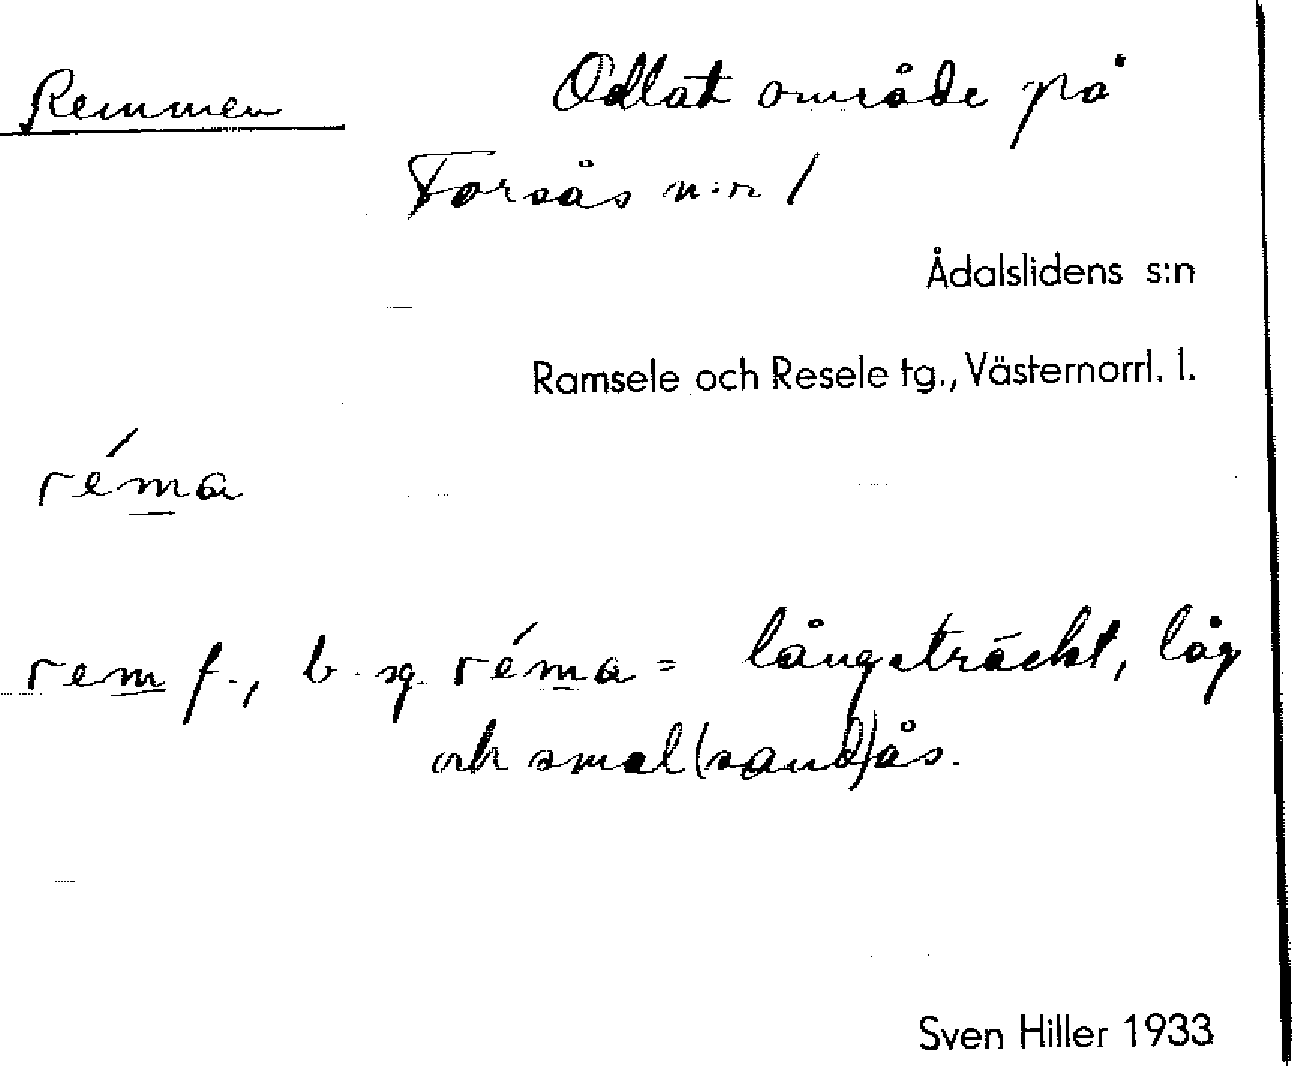 Remmen Odlat område på
Forsås n:r 1
Ådalslidens s:n
Ramsele och Resele tg., Västernorrl. l.
réma
rem f., b. sg. réma = långsträckt, låg
och smal (sand)ås.
Sven Hiller 1933